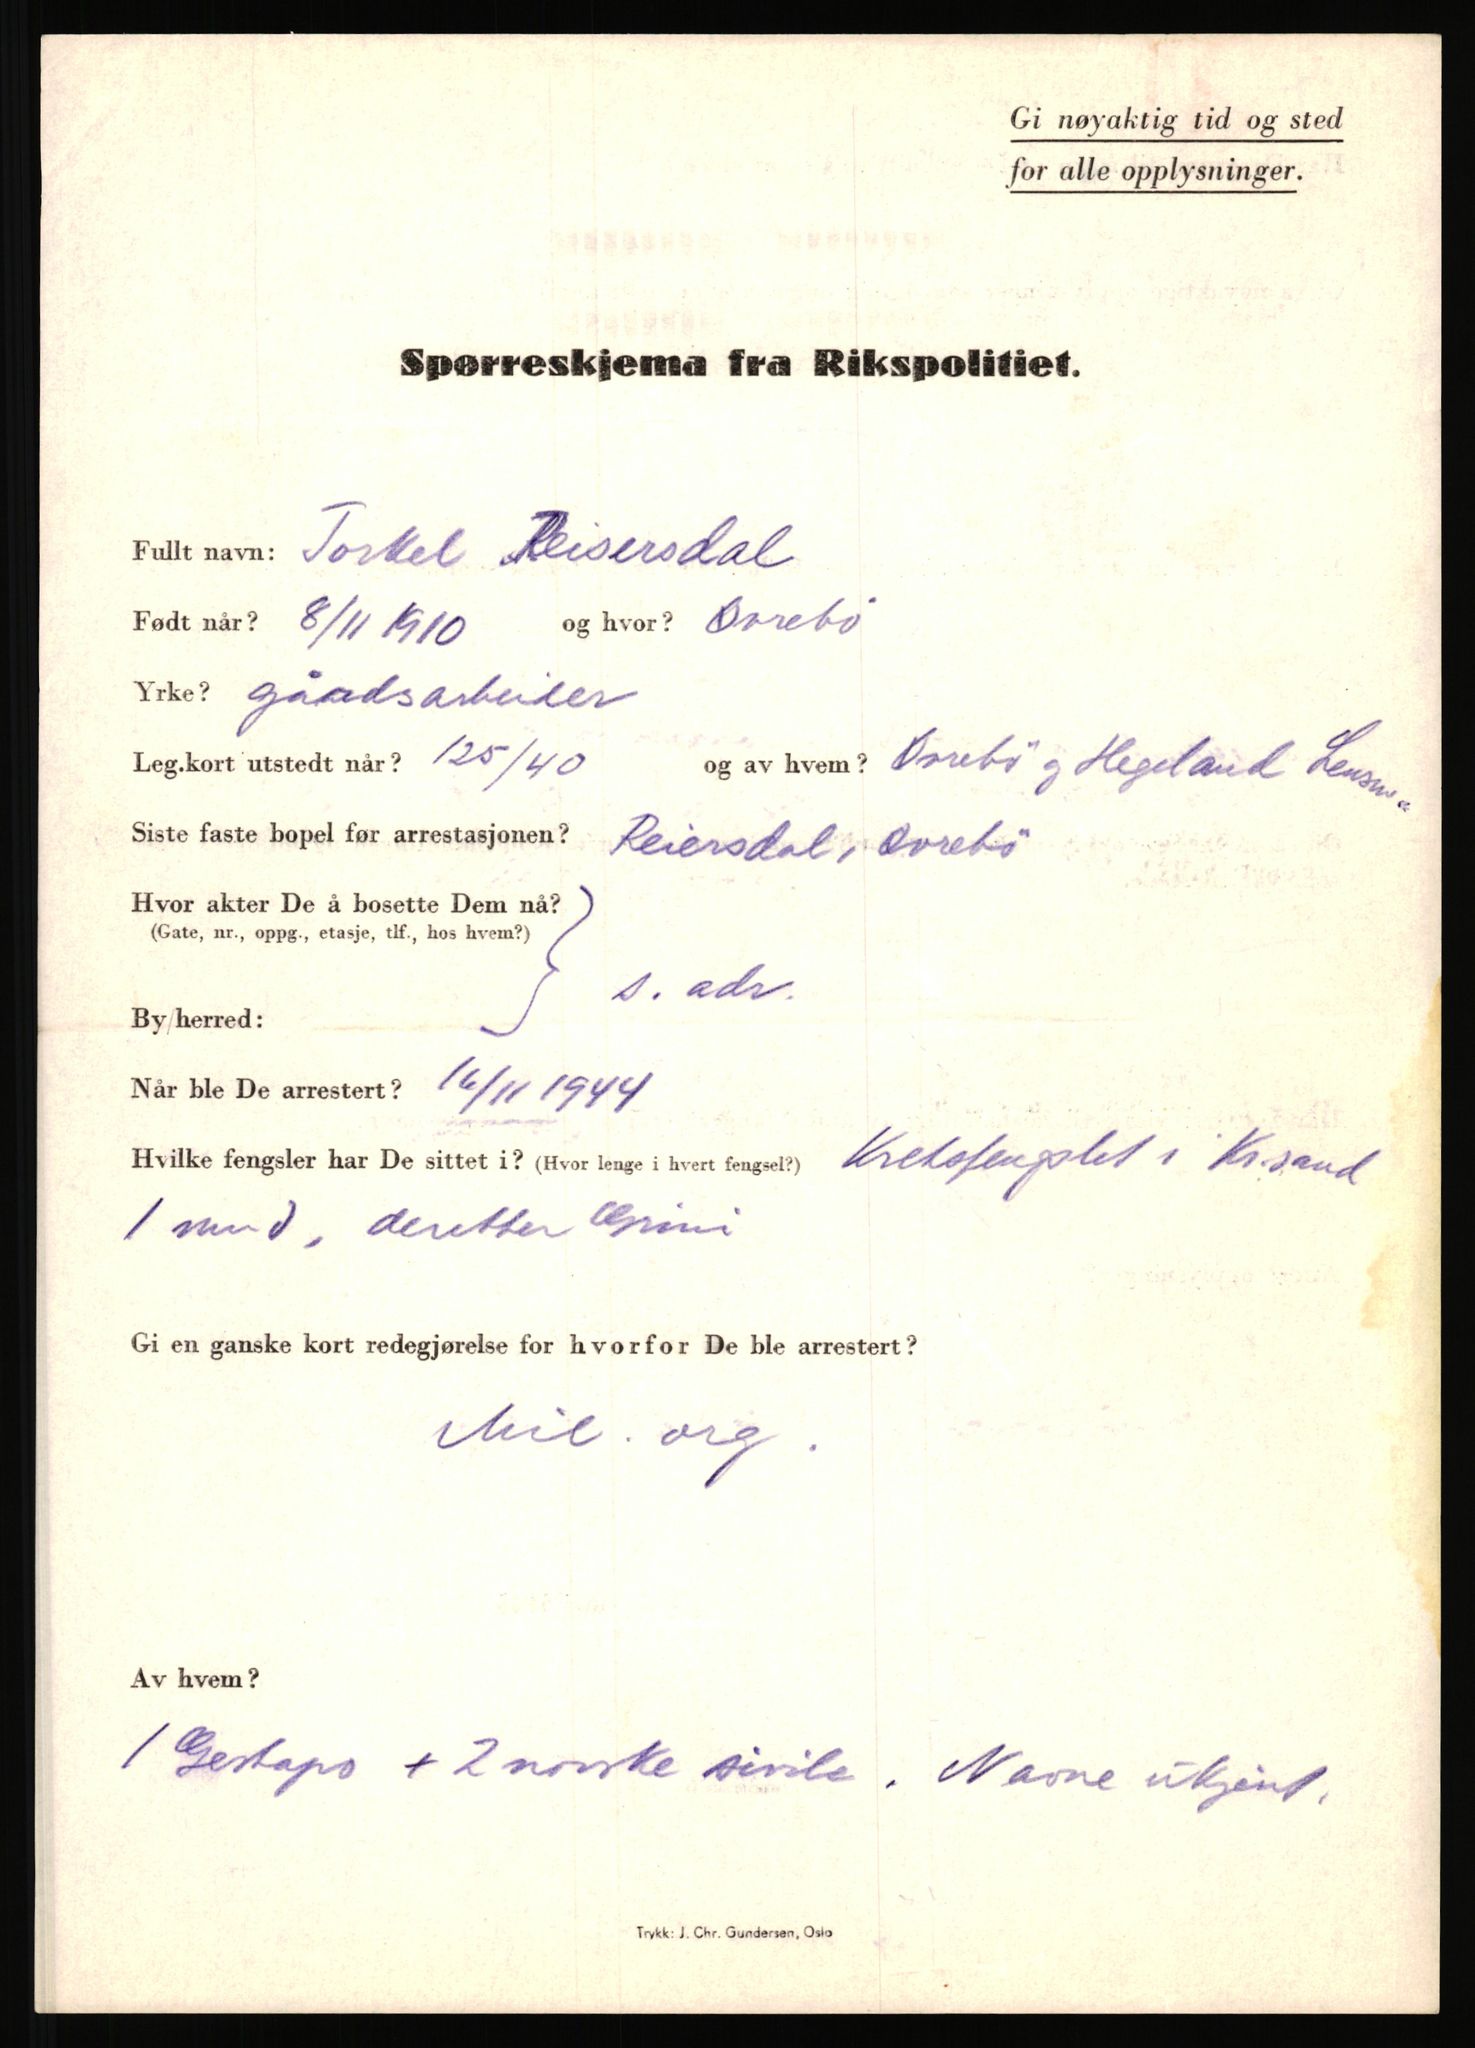 Gi nøyaktig tid og sted
for alle opplysninger.
Spørreskjema fra Rikspolitiet.
Fullt navn: Torkel Reisersdal
Født når? 8/11 1910 og hvor? Øvrebö
Yrke? gårdsarbeider
Leg.kort utstedt når? 125/40 og av hvem? Øvrebö og Hegeland Lensm.
Siste faste bopel før arrestasjonen? Reiersdal, Øvrebö
Hvor akter De å bosette Dem nå?
(Gate, nr., oppg., etasje, tlf., hos hvem?)
s. adr.
By/herred:
Når ble De arrestert? 16/11 1944
Hvilke fengsler har De sittet i? (Hvor lenge i hvert fengsel?) Kretsfengslet i Kr.sand
1 mnd, deretter Grini
Gi en ganske kort redegjørelse for hvorfor De ble arrestert?
Mil. org.
Av hvem?
1 Gestapo + 2 norske sivile. Navne ukjent.
Trykk: J. Chr. Gundersen, Oslo